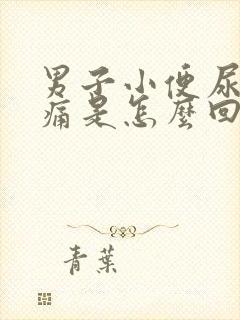 男子小便尿
痛是怎麼回
青葉